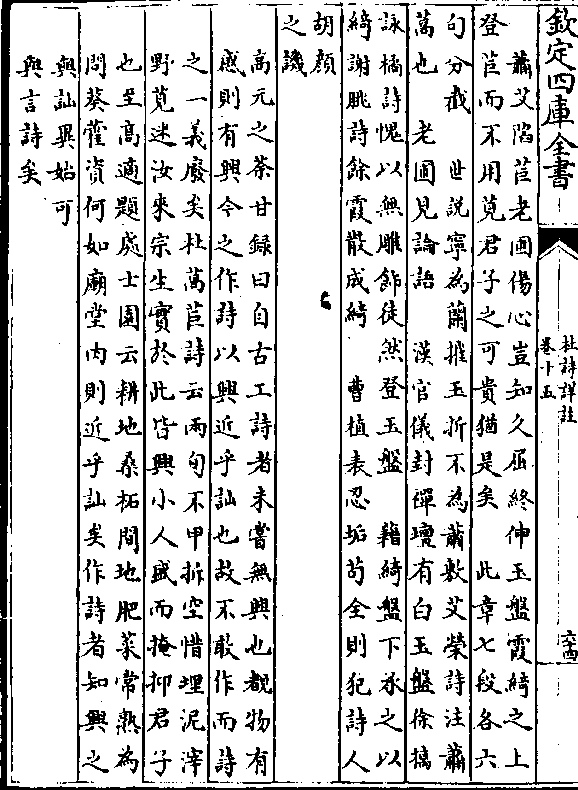 欽定四庫全書
杜詩詳註
卷十五
六四
蕭艾陷苣老圃傷心豈知久屈終伸玉盤霞綺之上
登苣而不用莧君子之可貴猶是矣　此章七段各六
句分截　世說寧為蘭摧玉折不為蕭敷艾榮詩注蕭
萬也　老圃見論語　漢官儀封禪壇有白玉盤徐摛
詠橘詩愧以無雕飾徒然登玉盤　藉綺盤下承之以
綺謝朓詩餘霞散成綺　曹植表忍垢茍全則犯詩人
胡顏
之譏
高元之荼甘録曰自古工詩者未嘗無興也覩物有
感則有興今之作詩以興近乎訕也故不敢作而詩
之一義廢矣杜萵苣詩云兩旬不甲拆空惜埋泥滓
野莧迷汝來宗生實於此皆興小人盛而掩抑君子
也至高適題處士園云耕地桑柘間地肥菜常熟為
問葵藿資何如廟堂內則近乎訕矣作詩者知興之
與訕異始可
與言詩矣